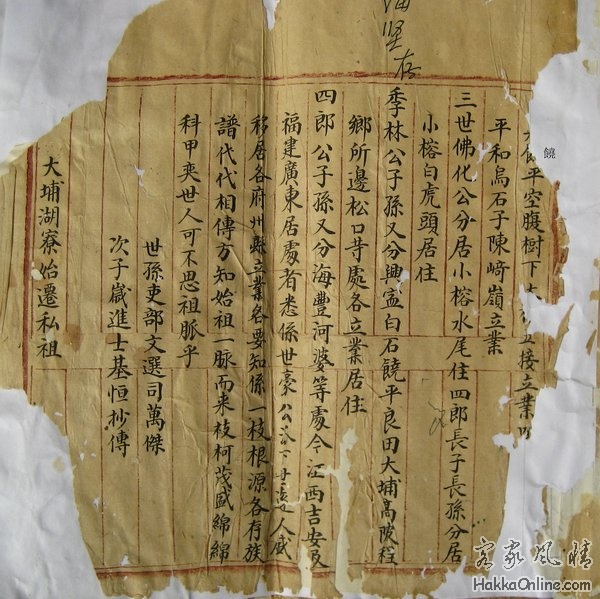 海坚存
饒
平空腹樹下 接立業
平和烏石子陳﨑嶺立業
三世佛化公分居小榕水尾住四郎長子長孫分居
小榕白虎頭居住
季林公子孫又分興寧白石饒平良田大埔高陂程
鄉所邊松口等處各立業居住
四郎公子孫又分海豐河婆等處今江西吉安及
福建廣東居處者悉係世豪公 人盛
移居各府州縣立業各要知係一枝根源各存族
譜代代相傳方知始祖一脉而来枝柯茂盛綿綿
科甲奕世人可不思祖脈乎
世孫吏部文選司萬傑
次子歲進士基恒抄傳
大埔湖寮始遷私祖
客家風情
HakkaOnline.com